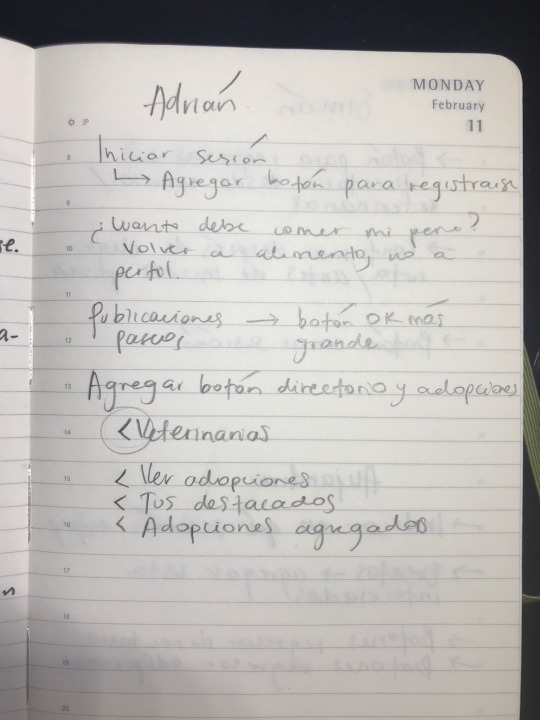 MONDAY
February
11
Adrián
JP
8
Iniciar sesión
↳ Agregar botón para registrarse
9
¿Cuanto debe comer mi perro?
10
Volver a alimento, no a
perfil.
11
Publicaciones → botón OK más
12
paseos grande
13
Agregar botón directorio y adopciones
14
< Veterinarias
15
< Ver adopciones
< Tus destacados
16
< Adopciones agregadas
17
18
19
20
se.
a-
n